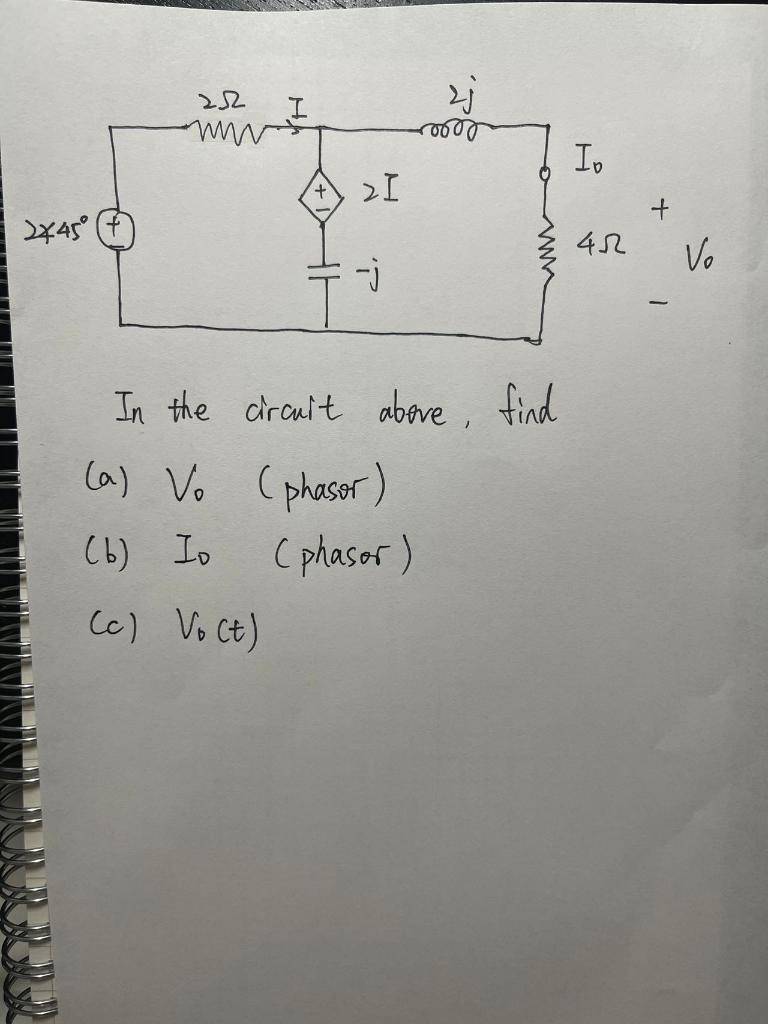 2Ω I 2j
I₀
2∠45° + − + − 2I 4Ω + V₀ −
-j
In the circuit above, find
(a) V₀ (phasor)
(b) I₀ (phasor)
(c) V₀(t)